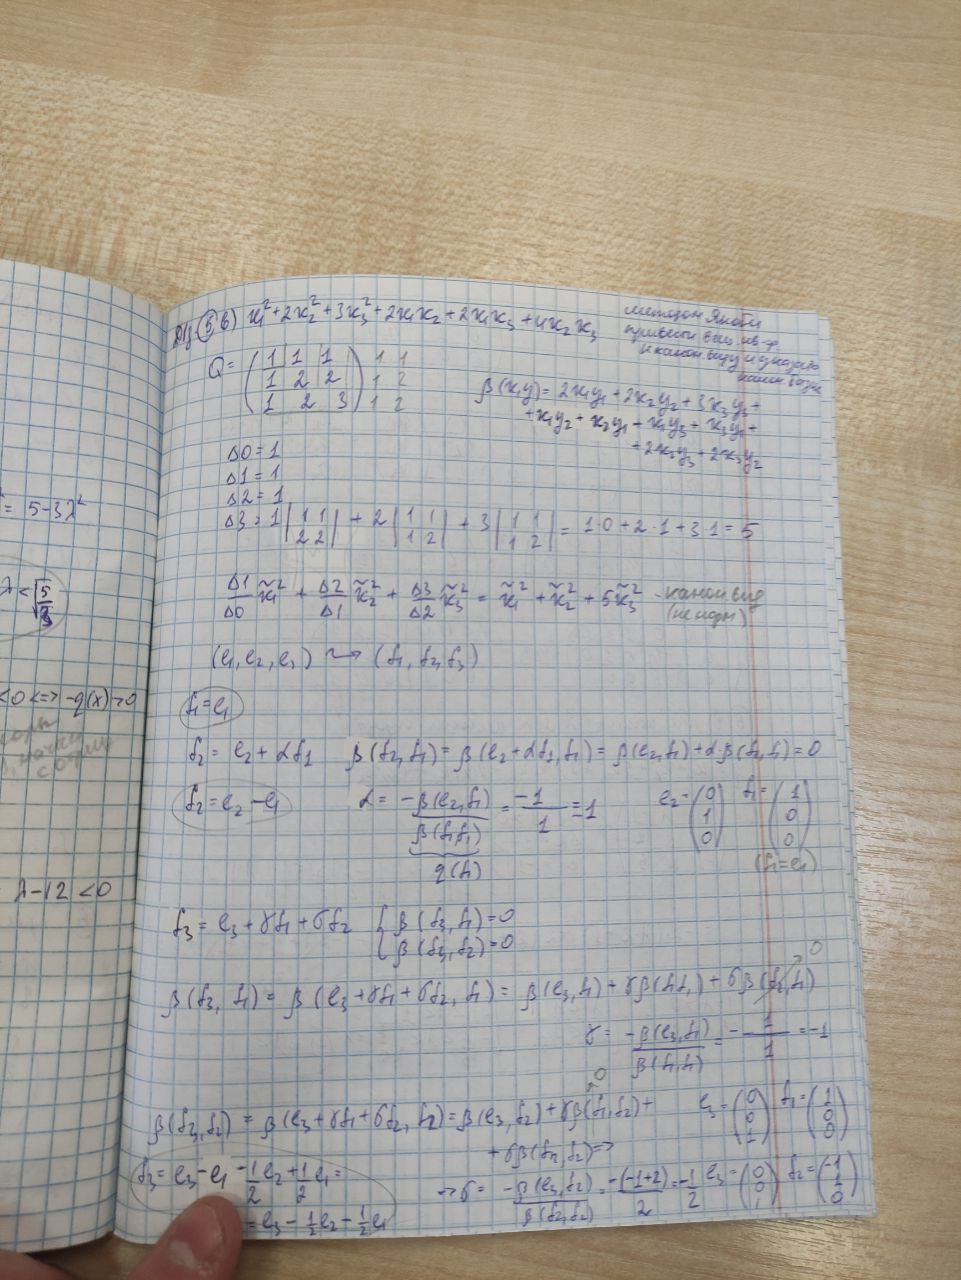 = 5-3λ²
λ < √5/3
<0 <=> -q(x)>0
λ-12 <0
ДЗ 5 в) x₁²+2x₂²+3x₃²+2x₁x₂+2x₁x₃+4x₂x₃
методом Якоби
привести
к канон виду и указать
Q= (1 1 1) 1 1
(1 2 2) 1 2
(1 2 3) 1 2
β(x,y)= 2x₁y₁+2x₂y₂+3x₃y₃+
+x₁y₂+x₂y₁+x₁y₃+x₃y₁+
+2x₂y₃+2x₃y₂
Δ0=1
Δ1=1
Δ2=1
Δ3=1 |1 1; 2 2| + 2 |1 1; 1 2| + 3 |1 1; 1 2| = 1·0+2·1+3·1=5
Δ1/Δ0 x̃₁² + Δ2/Δ1 x̃₂² + Δ3/Δ2 x̃₃² = x̃₁² + x̃₂² + 5x̃₃² - канон вид
(не норм)
(e₁,e₂,e₃) ⇝ (f₁,f₂,f₃)
f₁=e₁
f₂= e₂+αf₁ β(f₂,f₁)= β(e₂+αf₁,f₁)= β(e₂,f₁)+αβ(f₁,f₁)=0
f₂=e₂-e₁ α= -β(e₂,f₁)/β(f₁,f₁) = -1/1 =-1 e₂=(0 1 0) f₁=(1 0 0)
q(f₁) (f₁=e₁)
f₃= e₃+γf₁+σf₂ { β(f₃,f₁)=0
β(f₃,f₂)=0
β(f₃,f₁)= β(e₃+γf₁+σf₂,f₁)= β(e₃,f₁)+γβ(f₁,f₁)+σβ(f₂,f₁) 0
γ= -β(e₃,f₁)/β(f₁,f₁) = -1/1 =-1
β(f₃,f₂)= β(e₃+γf₁+σf₂,f₂)= β(e₃,f₂)+γβ(f₁,f₂)+ 0 e₃=(0 0 1) f₁=(1 0 0)
+σβ(f₂,f₂)=>
f₃= e₃-e₁-1/2e₂+1/2e₁=
→σ= -β(e₃,f₂)/β(f₂,f₂) = -(-1+2)/2 = -1/2 e₃=(0 0 1) f₂=(-1 1 0)
= e₃-1/2e₂-1/2e₁